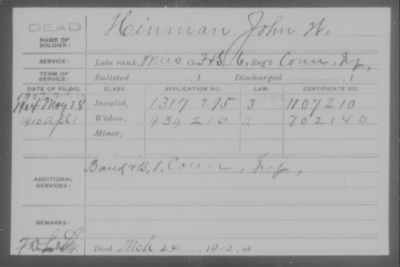 DEAD
Hinman John W.
NAME OF SOLDIER:
SERVICE: Late rank, Mus Co. F&S, 6, Reg't Conn. Inf,
TERM OF SERVICE: Enlisted , 1 Discharged , 1
DATE OF FILING. CLASS. APPLICATION NO. LAW. CERTIFICATE NO.
May 28 Invalid, 1317 275 J 1107210
1910 Apl 1 Widow, 939 210 702140
Minor,
ADDITIONAL SERVICES: Band & B, 1, Conn, Inf,
REMARKS:
Died Mch 24 , 1910, at